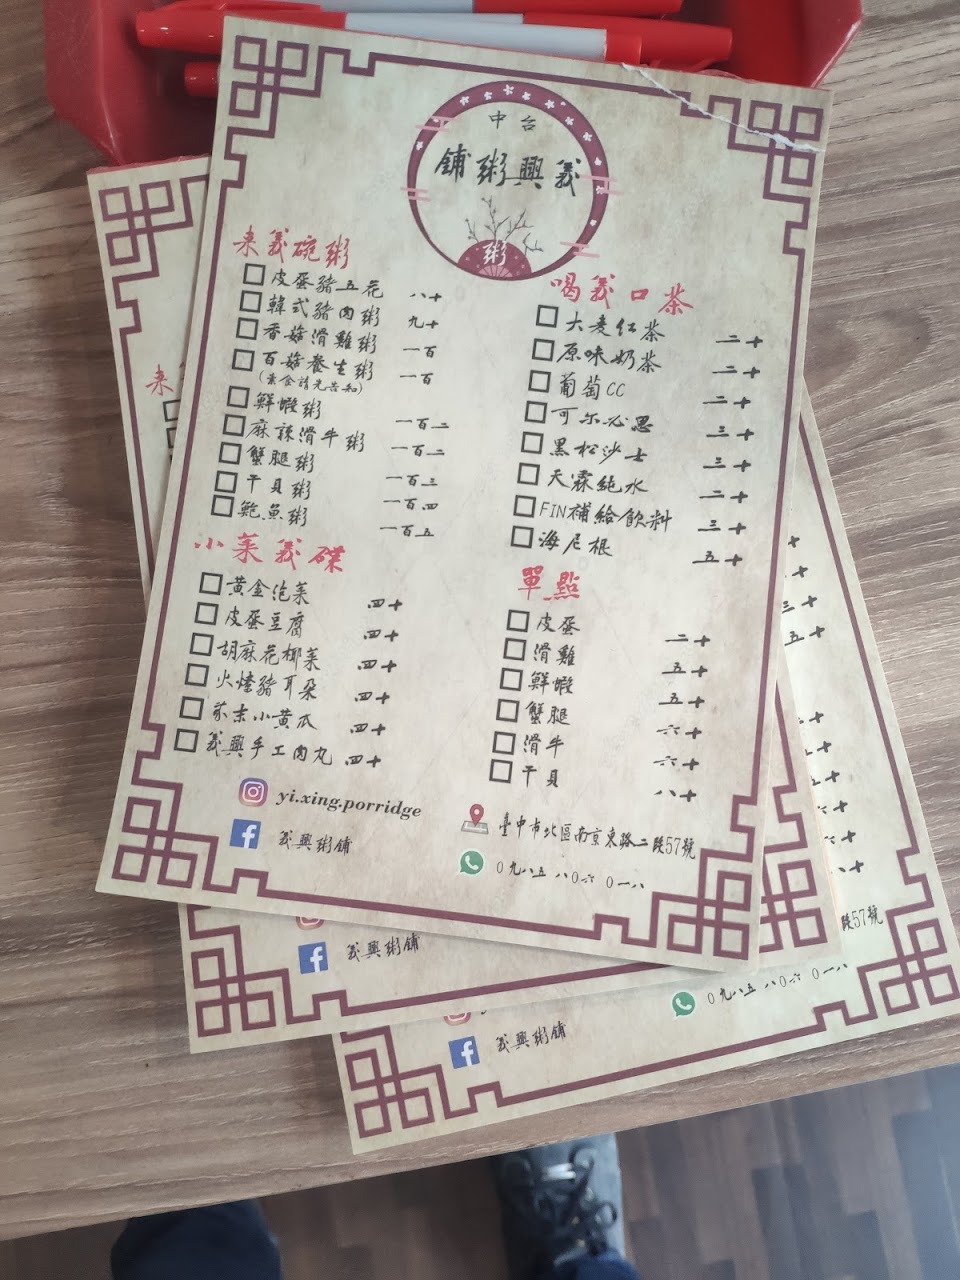 中台
舖粥興義
粥
来義碗粥
皮蛋豬五花 八十
韓式豬肉粥 九十
香菇滑雞粥 一百
百菇養生粥 一百
(素食請先告知)
鮮蝦粥 一百二
麻辣滑牛粥 一百二
蟹腿粥 一百三
干貝粥 一百四
鮑魚粥 一百五
小菜義碟
黄金泡菜 四十
皮蛋豆腐 四十
胡麻花椰菜 四十
火燎豬耳朵 四十
蒜末小黄瓜 四十
義興手工肉丸 四十
喝義口茶
大麦红茶 二十
原味奶茶 二十
葡萄CC 二十
可尔必思 三十
黑松沙士 三十
天霖純水 二十
FIN補給飲料 三十
海尼根 五十
單點
皮蛋 二十
滑雞 五十
鮮蝦 五十
蟹腿 六十
滑牛 六十
干貝 八十
yi.xing.porridge
義興粥舖
臺中市北區南京東路二段57號
0九八五 八0六 0一八
来
三十
五十
段57號
義興粥舖
0九八五 八0六 0一八
義興粥舖